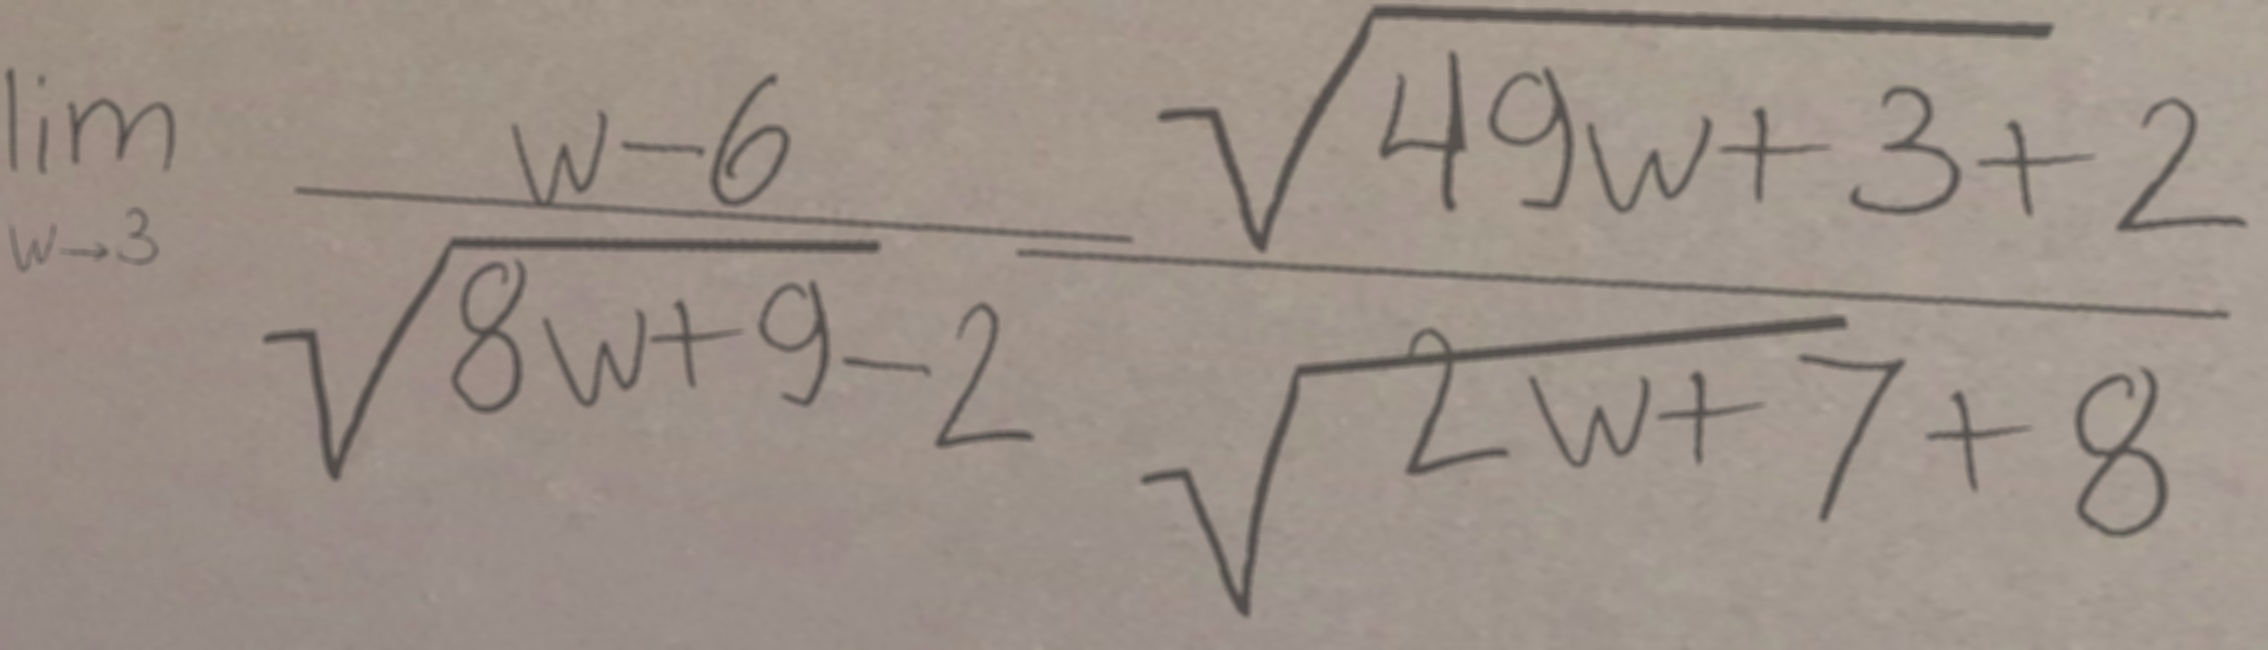 \lim_{w \to 3} \frac{w-6}{\sqrt{8w+9}-2} \frac{\sqrt{49w+3}+2}{\sqrt{2w+7}+8}